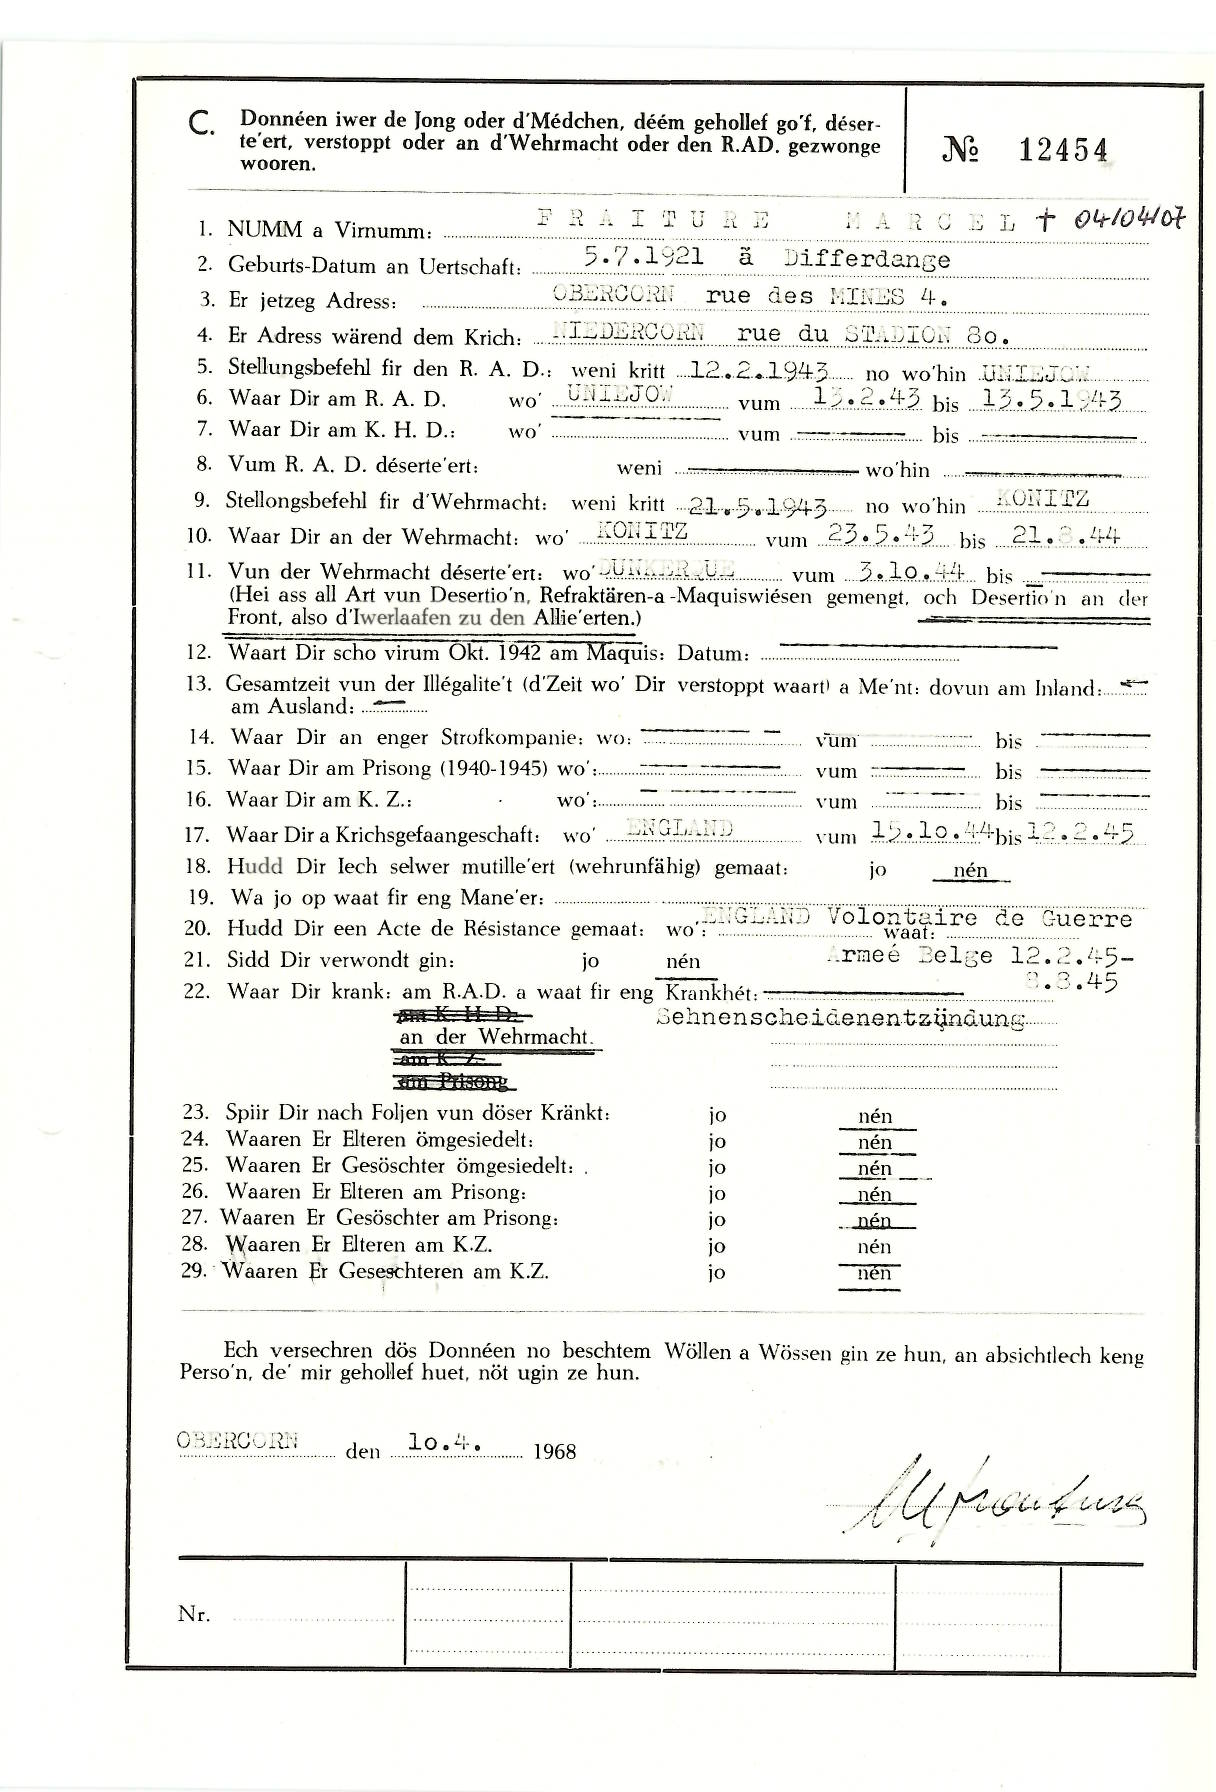 C. Donnéen iwer de Jong oder d'Médchen, déém gehollef go'f, déser-
te'ert, verstoppt oder an d'Wehrmacht oder den R.AD. gezwonge
wooren.
№ 12454
1. NUMM a Virnumm: FRAITURE MARCEL † 04/04/07
2. Geburts-Datum an Uertschaft: 5.7.1921 ä Differdange
3. Er jetzeg Adress: OBERCORN rue des MINES 4.
4. Er Adress wärend dem Krich: NIEDERCORN rue du STADION 80.
5. Stellungsbefehl fir den R. A. D.: weni kritt 12.2.1943 no wo'hin UNIEJOW
6. Waar Dir am R. A. D. wo' UNIEJOW vum 13.2.43 bis 13.5.1943
7. Waar Dir am K. H. D.: wo' vum bis
8. Vum R. A. D. déserte'ert: weni wo'hin
9. Stellongsbefehl fir d'Wehrmacht: weni kritt 21.5.1943 no wo'hin KONITZ
10. Waar Dir an der Wehrmacht: wo' KONITZ vum 23.5.43 bis 21.8.44
11. Vun der Wehrmacht déserte'ert: wo' DUNKERQUE vum 3.10.44 bis
(Hei ass all Art vun Desertio'n, Refraktären-a-Maquiswiésen gemengt, och Desertio'n an der
Front, also d'Iwerlaafen zu den Allie'erten.)
12. Waart Dir scho virum Okt. 1942 am Maquis: Datum:
13. Gesamtzeit vun der Illégalite't (d'Zeit wo' Dir verstoppt waart) a Me'nt: dovun am Inland:
am Ausland:
14. Waar Dir an enger Strofkompanie: wo: vum bis
15. Waar Dir am Prisong (1940-1945) wo': vum bis
16. Waar Dir am K. Z.: wo': vum bis
17. Waar Dir a Krichsgefaangeschaft: wo' ENGLAND vum 15.10.44 bis 12.2.45
18. Hudd Dir Iech selwer mutille'ert (wehrunfähig) gemaat: jo nén
19. Wa jo op waat fir eng Mane'er:
20. Hudd Dir een Acte de Résistance gemaat: wo': ENGLAND waat: Volontaire de Guerre
21. Sidd Dir verwondt gin: jo nén Armeé Belge 12.2.45-
8.8.45
22. Waar Dir krank: am R.A.D. a waat fir eng Krankhét:
am K. H. D. Sehnenscheidenentzündung
an der Wehrmacht.
am K Z.
am Prisong
23. Spiir Dir nach Foljen vun döser Kränkt: jo nén
24. Waaren Er Elteren ömgesiedelt: jo nén
25. Waaren Er Gesöschter ömgesiedelt: jo nén
26. Waaren Er Elteren am Prisong: jo nén
27. Waaren Er Gesöschter am Prisong: jo nén
28. Waaren Er Elteren am K.Z. jo nén
29. Waaren Er Geseschteren am K.Z. jo nén
Ech versechren dös Donnéen no beschtem Wöllen a Wössen gin ze hun, an absichtlech keng
Perso'n, de' mir gehollef huet, nöt ugin ze hun.
OBERCORN den 10.4. 1968
Nr.